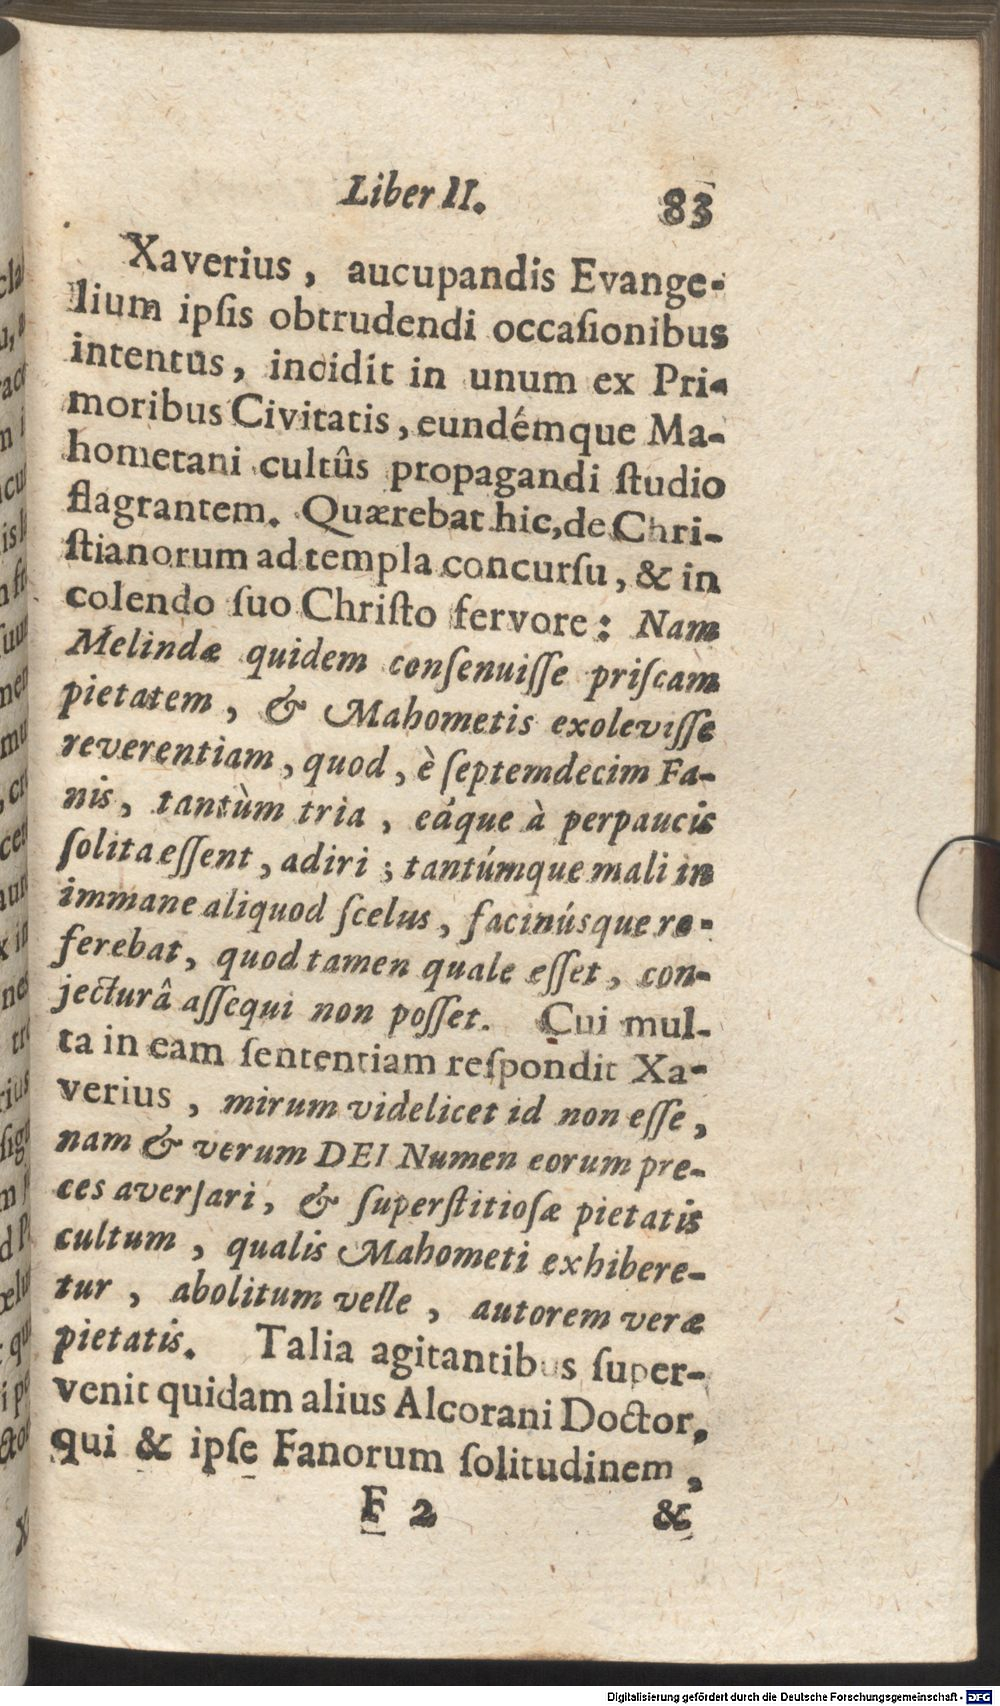 Liber II. 83
Xaverius, aucupandis Evange-
lium ipſis obtrudendi occaſionibus
intentus, incidit in unum ex Pri-
moribus Civitatis, eundémque Ma-
hometani cultûs propagandi ſtudio
flagrantem. Quærebat hic, de Chri-
ſtianorum ad templa concurſu, & in
colendo ſuo Chriſto fervore: Nam
Melindæ quidem conſenuiſſe priſcam
pietatem, & Mahometis exoleviſſe
reverentiam, quod, è ſeptemdecim Fa-
nis, tantùm tria, eáque à perpaucis
ſolita eſſent, adiri; tantúmque mali in
immane aliquod ſcelus, facinúsque re-
ferebat, quod tamen quale eſſet, con-
jecturâ aſſequi non poſſet. Cui mul-
ta in eam ſententiam reſpondit Xa-
verius, mirum videlicet id non eſſe,
nam & verum DEI Numen eorum pre-
ces averſari, & ſuperſtitioſæ pietatis
cultum, qualis Mahometi exhibere-
tur, abolitum velle, autorem veræ
pietatis. Talia agitantibus ſuper-
venit quidam alius Alcorani Doctor,
qui & ipſe Fanorum ſolitudinem,
F 2 &
Digitalisierung gefördert durch die Deutsche Forschungsgemeinschaft - DFG